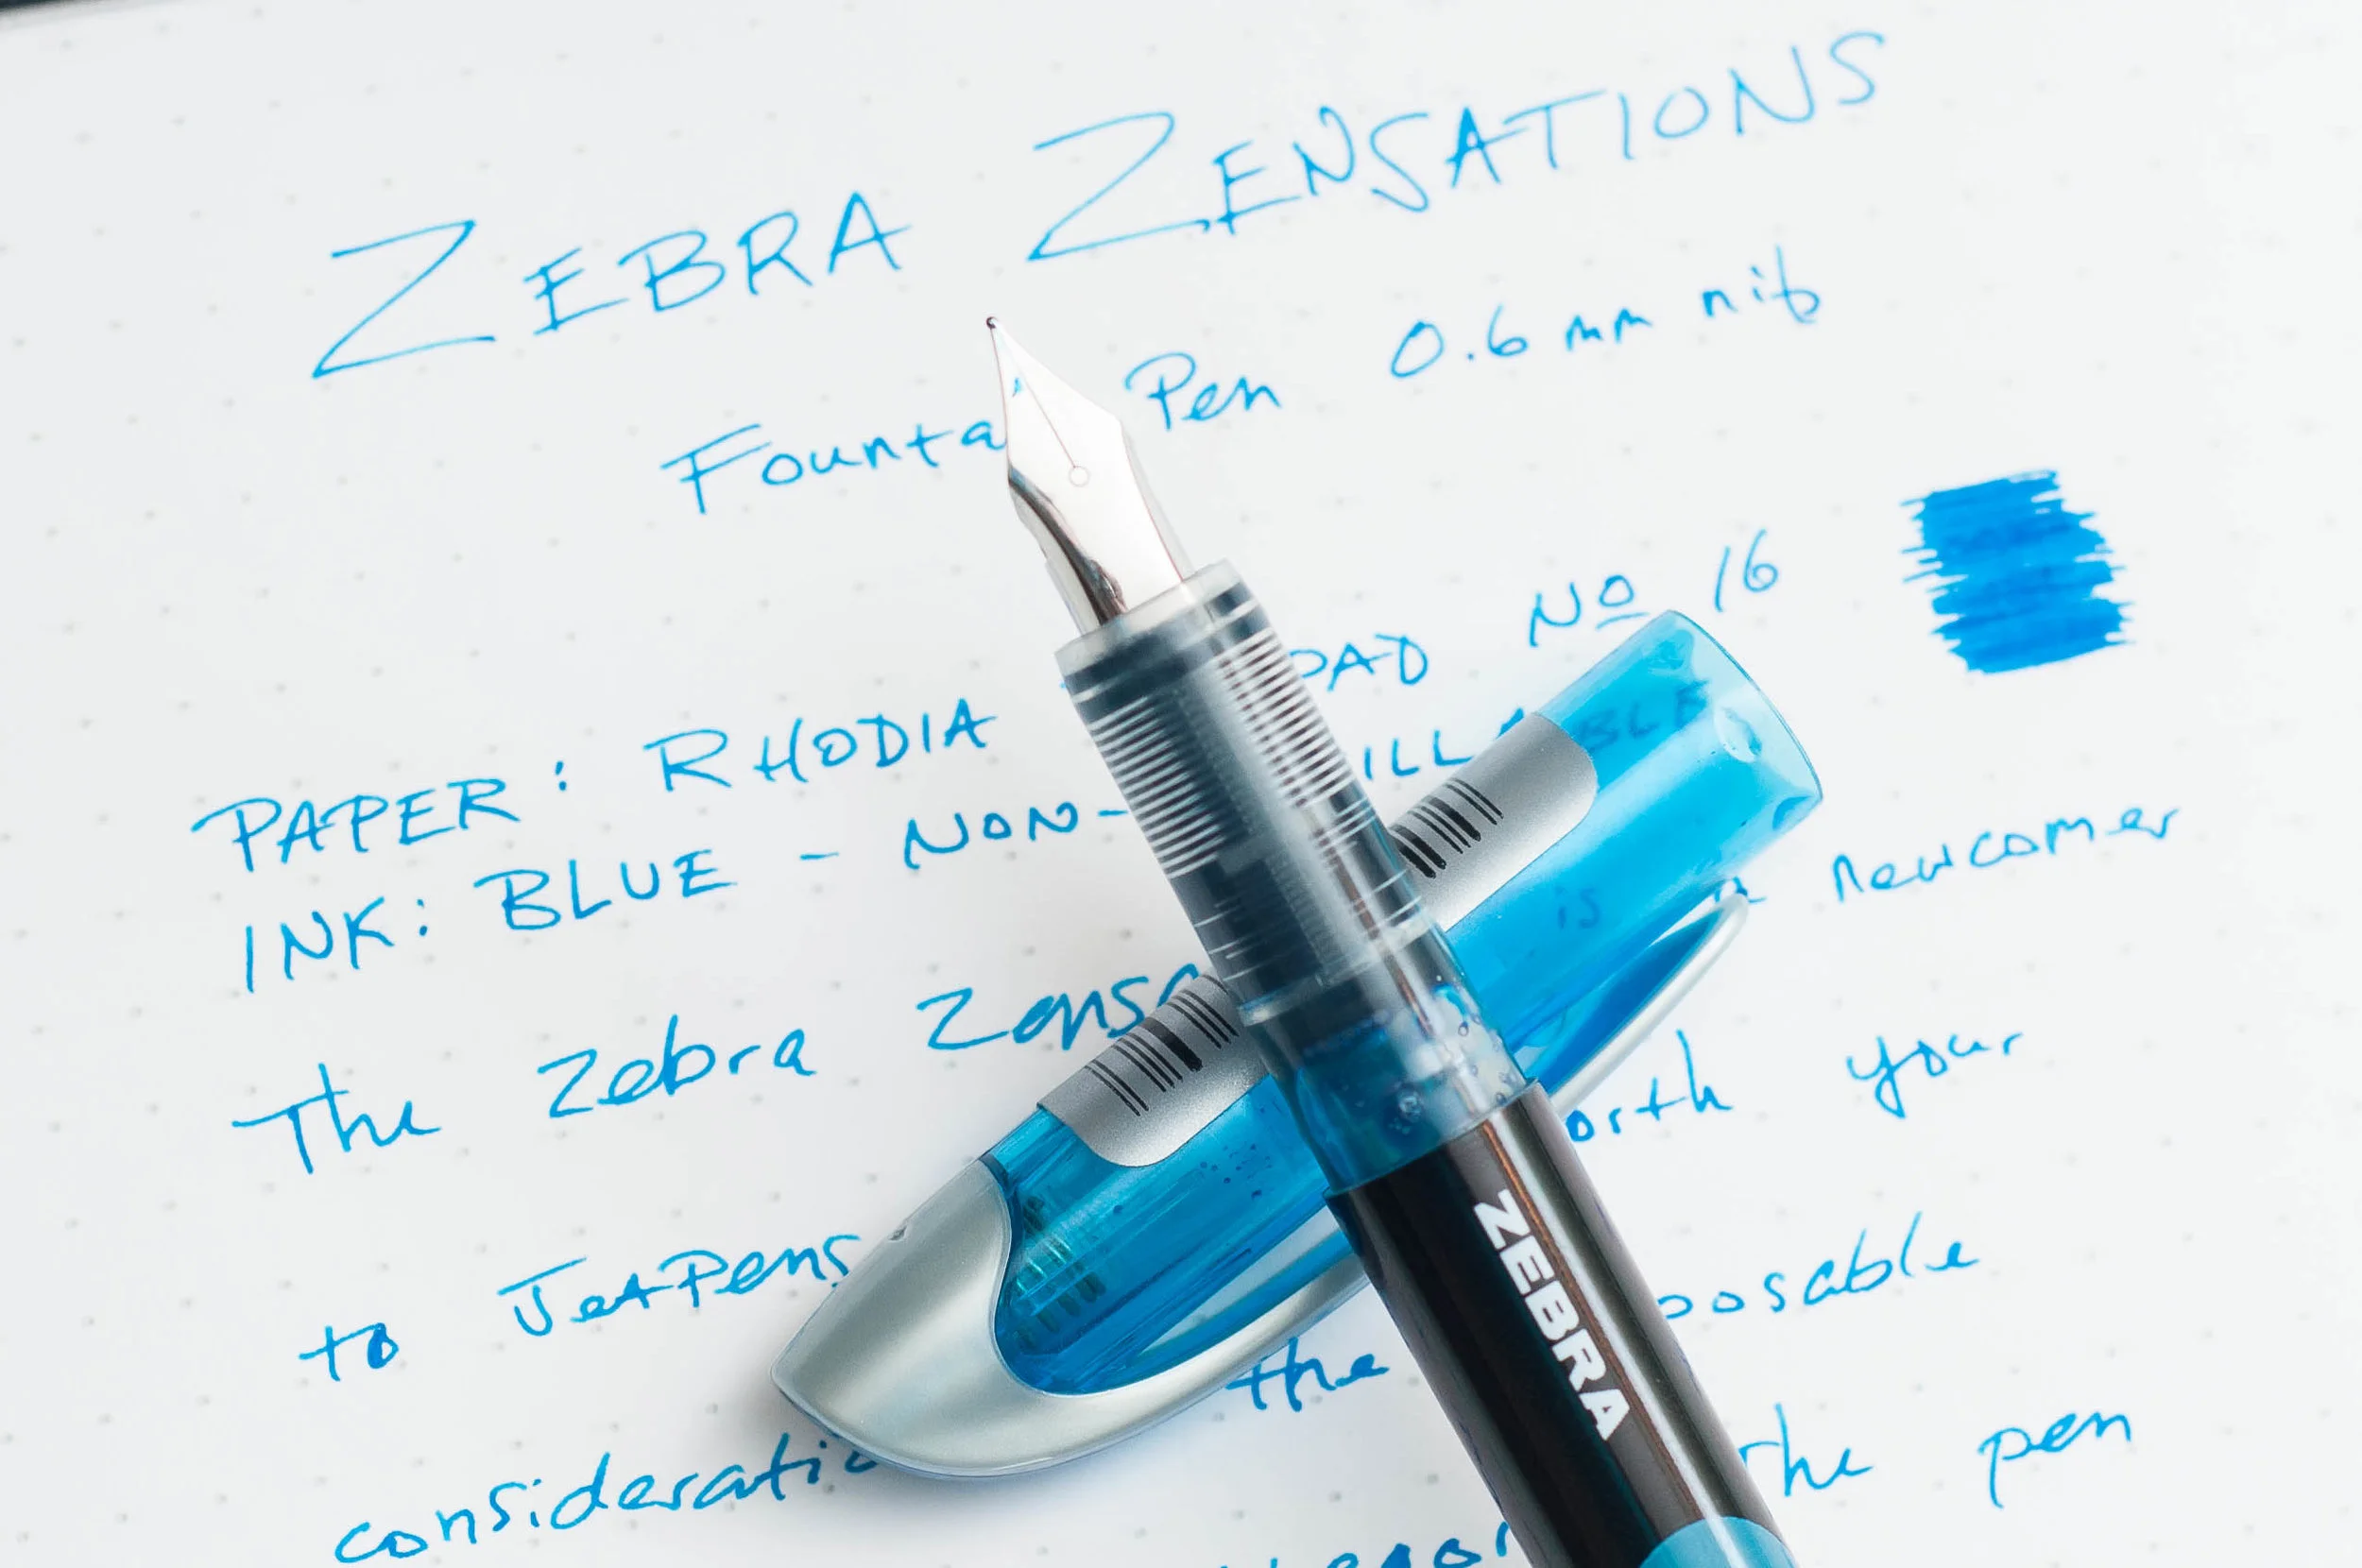 ZEBRA ZENSATIONS
Founta Pen 0.6 mm nib
PAPER: RHODIA PAD No 16
INK: BLUE - NON- ILLABLE
The Zebra Zensa is a newcomer
to JetPens orth your
consideratio the posable
the pen
ZEBRA